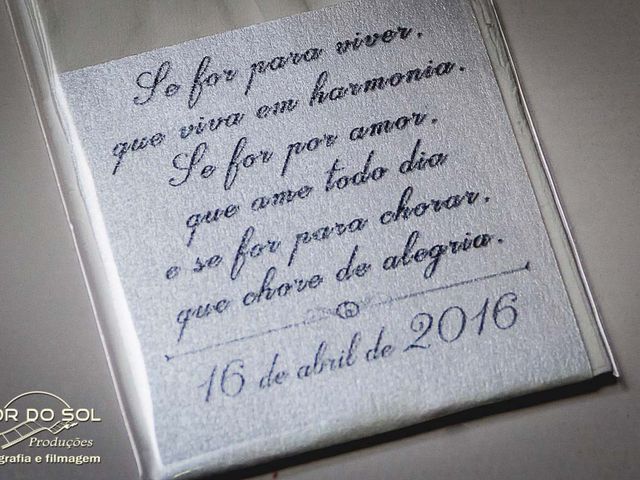 Se for para viver,
que viva em harmonia.
Se for por amor,
que ame todo dia
e se for para chorar,
que chore de alegria.
16 de abril de 2016
OR DO SOL
Produções
grafia e filmagem